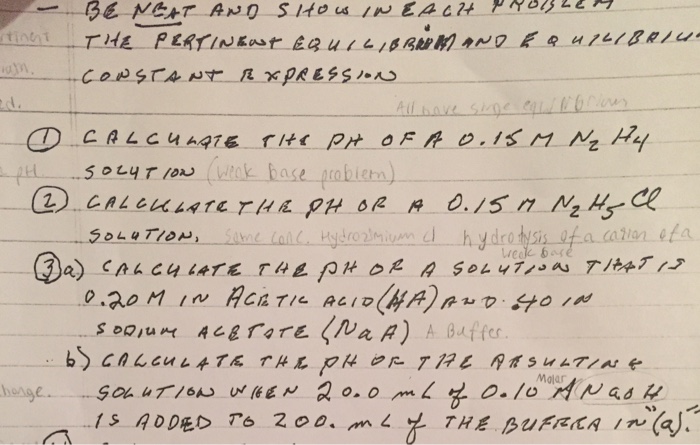 — BE NEAT AND SHOW IN EACH PROBLEM
THE PERTINENT EQUILIBRIUM AND EQUILIBRIU
CONSTANT EXPRESSION
ed.
All have
① CALCULATE THE PH OF A 0.15 M N₂H₄
PH
SOLUTION (weak base problem)
② CALCULATE THE PH OR A 0.15 M N₂H₅Cl
SOLUTION, Same conc. Hydrozimium cl hydrolysis of a cation of a
weak base
③a) CALCULATE THE PH OR A SOLUTION THAT IS
0.20 M IN ACETIC ACID (HA) AND .40 IN
SODIUM ACETATE (NaA) A Buffer.
b) CALCULATE THE PH OF THE RESULTING
Molar
hange. SOLUTION WHEN 20.0 mL of 0.10 M NaOH
IS ADDED TO 200. mL of THE BUFFER IN "(a)."